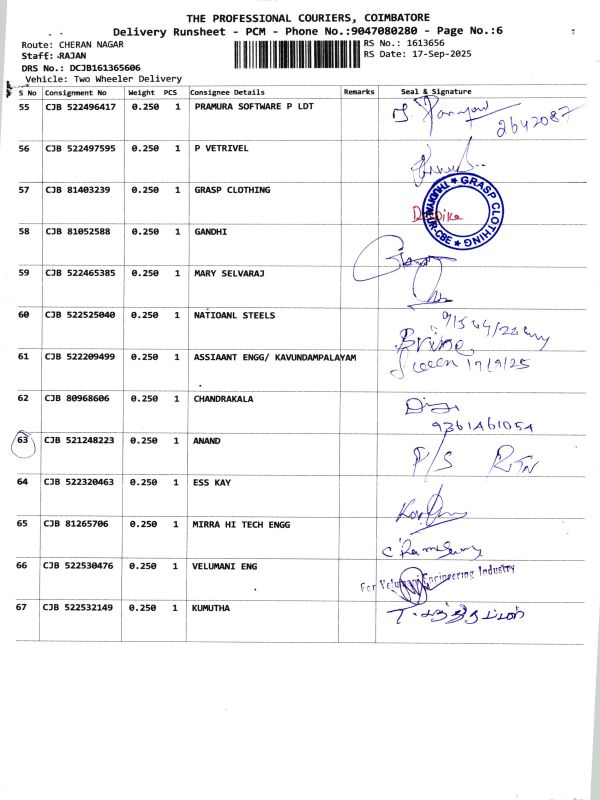 THE PROFESSIONAL COURIERS, COIMBATORE
Delivery Runsheet - PCM - Phone No.:9047080280 - Page No.:6
Route: CHERAN NAGAR RS No.: 1613656
Staff: RAJAN RS Date: 17-Sep-2025
DRS No.: DCJB161365606
Vehicle: Two Wheeler Delivery
S No Consignment No Weight PCS Consignee Details Remarks Seal & Signature
55 CJB 522496417 0.250 1 PRAMURA SOFTWARE P LDT
2642087
56 CJB 522497595 0.250 1 P VETRIVEL
57 CJB 81403239 0.250 1 GRASP CLOTHING
GRASP CLOTHING
58 CJB 81052588 0.250 1 GANDHI
59 CJB 522465385 0.250 1 MARY SELVARAJ
60 CJB 522525040 0.250 1 NATIOANL STEELS
61 CJB 522209499 0.250 1 ASSIAANT ENGG/ KAVUNDAMPALAYAM
62 CJB 80968606 0.250 1 CHANDRAKALA
9361461054
63 CJB 521248223 0.250 1 ANAND P/S RTN
64 CJB 522320463 0.250 1 ESS KAY
65 CJB 81265706 0.250 1 MIRRA HI TECH ENGG
66 CJB 522530476 0.250 1 VELUMANI ENG
For Velumani Engineering Industry
67 CJB 522532149 0.250 1 KUMUTHA